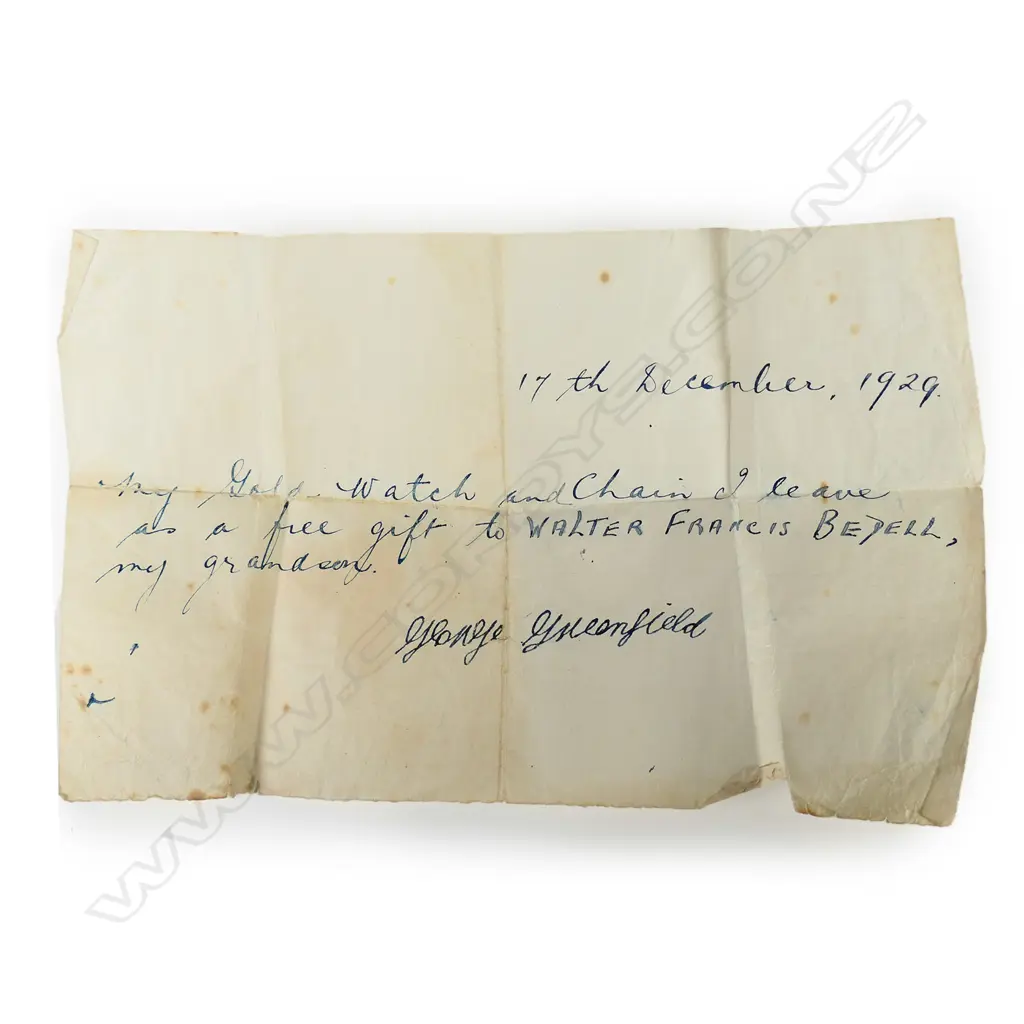 17th December, 1929.
My Gold Watch and Chain I leave
as a free gift to WALTER FRANCIS BEDELL,
my grandson.
George Greenfield
WWW.CORDYS.CO.NZ